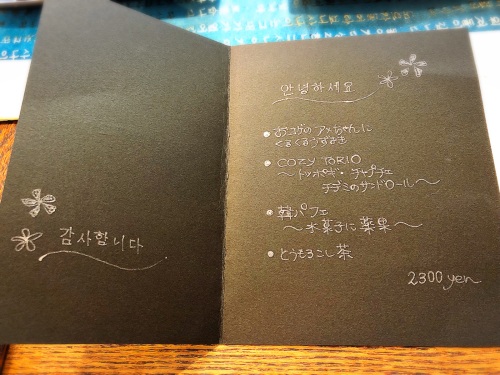 감사합니다
안녕하세요
くるくるうずまき
COZY TORIO
〜トッポギ・チャプチェ
チヂミのサンドロール〜
韓パフェ
〜氷菓子に薬果〜
とうもろこし茶
2300 yen